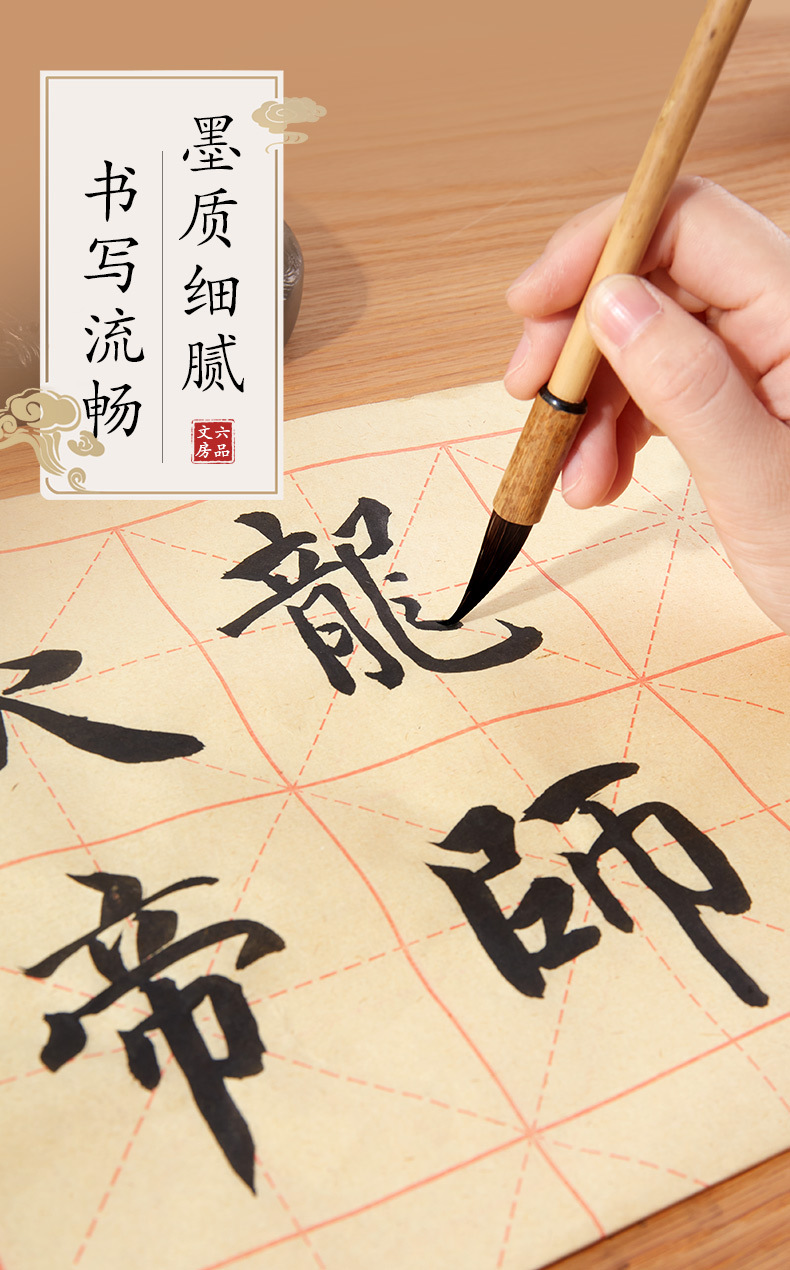 墨质细腻
书写流畅
六品
文房
龍師
帝